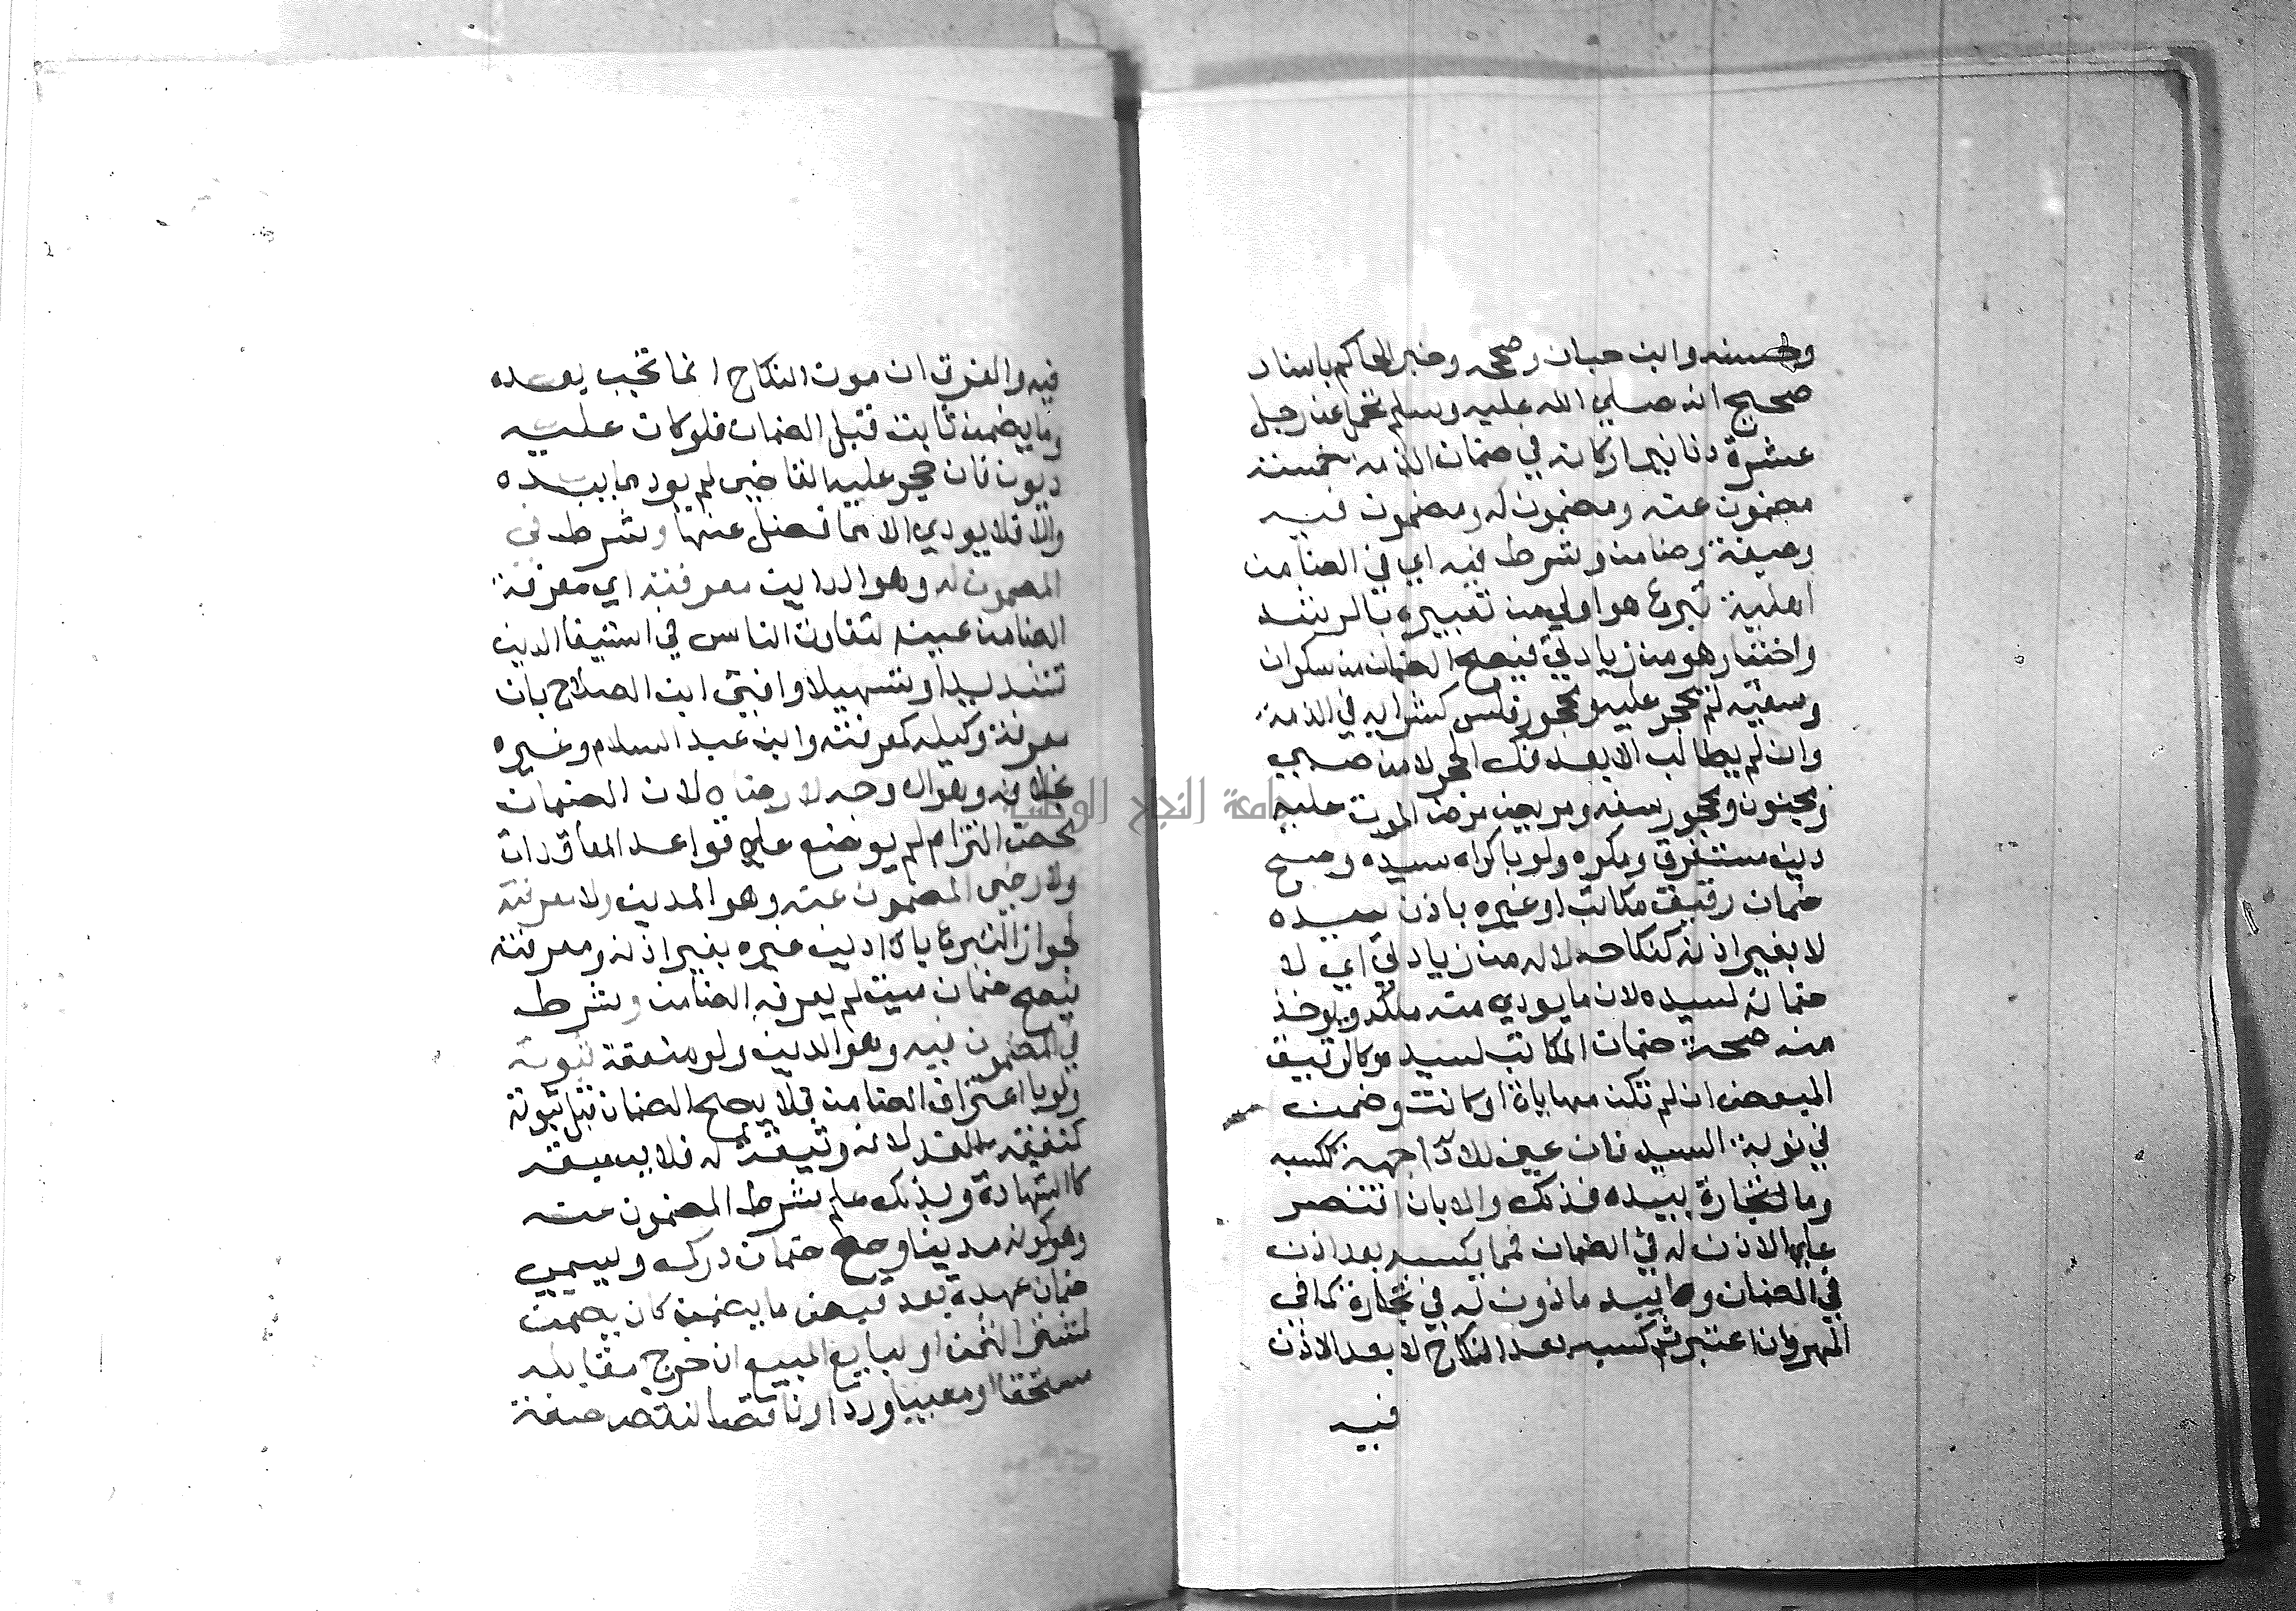 وحسنه وابن حبان وصححه وخبر الحاكم باسناد
صحيح انه صلي الله عليه وسلم تحمل عن رجل
عشرة دنانير اركانه في ضمان الذمة خمسة
مضمون عنه ومضمون له ومضمون فيه
وصيغة وضامن وشرط فيه اي في الضامن
اهلية تبرع هو اولي من تعبيره بالرشد
واختيار هو من زيادتي فيصح الضمان من سكران
وسفيه لم يحجر عليه ومحجور فلس كشرايه في الذمة
وان لم يطالب الا بعد فك الحجر لا من صبي
ومجنون ومحجور سفه ومريض مرض الموت عليه
دين مستغرق ومكره ولو باكراه سيده وصح
ضمان رقيق مكاتب او غيره باذن سيده
لا بغير اذنه كنكاحه لا له من زيادتي اي لا
ضمانه لسيده لان ما يودي منه ملكه ويوخذ
منه صحة ضمان المكاتب لسيده وكالرقيق
المبعض ان لم تكن مهاياة او كانت وضمن
في نوبة السيد فان عين للادا جهة ككسبه
ومال تجارة بيده فذاك والا بان اقتصر
علي الاذن له في الضمان فمما يكسبه بعد اذن
في الضمان وما بيد ماذون له في تجارة كما في
المهر وان اعتبر ثم كسبه بعد النكاح لا بعد الاذن
فيه
فيه والفرق ان مون النكاح انما تجب بعده
وما يضمن ثابت قبل الضمان فلو كان عليه
ديون فان حجر عليه القاضي لم يود مما بيده
والا فلا يودي الا مما فضل عنها وشرط في
المضمون له وهو الداين معرفته اي معرفة
الضامن عينه لتفاوت الناس في استيفا الدين
تشديدا وتسهيلا وافتي ابن الصلاح بان
معرفة وكيله كمعرفته وابن عبد السلام وغيره
بخلافه وهو الاوجه لا رضاه لان الضمان
محض التزام لم يوضع علي قواعد المعاقدات
ولا رضي المضمون عنه وهو المدين ولا معرفته
لجواز التبرع باداء دين غيره بغير اذنه ومعرفته
فيصح ضمان ميت لم يعرفه الضامن وشرط
في المضمون فيه وهو الدين ولو منفعة ثبوته
ولو باعتراف الضامن فلا يصح الضمان قبل ثبوته
كنفقة الغد لانه وثيقة له فلا يسبقه
كالشهادة وبذلك علم شرط المضمون عنه
وهو كونه مدينا وصح ضمان درك ويسمي
ضمان عهدة بعد قبض ما يضمن كان يضمن
لمشتر الثمن او لبايع المبيع ان خرج مقابله
مستحقا او معيبا ورد او ناقصا لنقص صفة